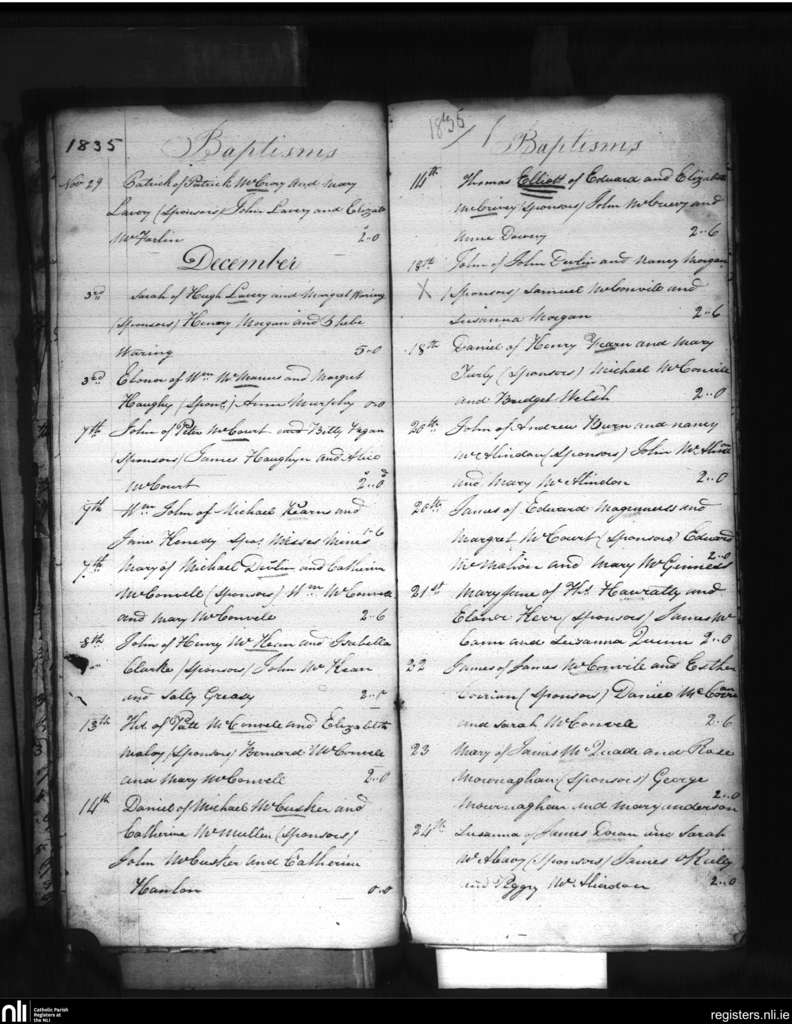 1835
Baptisms
Nov 29 Patrick of Patrick McCroy and Mary
Lavoy (Sponsors) John Lavery and Elizab
McFarlin 2..0
December
3rd Sarah of Hugh Lavery and Margret Waring
(Sponsors) Henry Morgan and Phebe
Waring 5-0
3rd Elenor of Wm McManus and Margret
Haughy (Spons) Ann Murphy 0-0
7th John of Peter McCourt and Betty Fagan
Sponsors) James Haughyn and Alice
McCourt 2..0
7th Wm John of Michael Kearns and
Jane Henedy Spos Misses
7th Mary of Michael Devlin and Catherin
McConvele (Sponsors) Wm McConvele
and Mary McConvele 2-6
8th John of Henry McKean and Isabella
Clarke (Sponsors) John McKean
and Sally Greasy
13th Hu of Patt McConvele and Elizabeth
Maloy (Sponsors) Bernard McConvele
and Mary McConvele 2..0
14th Daniel of Michael McCusker and
Catherine McMullen (Sponsors)
John McCusker and Catherin
Hanlon 0.0
1835
Baptisms
14th Thomas Elliott of Edward and Elizabeth
McCrivey (Sponsors) John McCrevy and
Anne Downy 2..6
18th John of John Devlin and Nancy Morgan
X (Sponsors) Samuel McConvile and
Susanna Morgan 2..6
18th Daniel of Henry and Mary
Turly (Sponsors) Michael McConvile
and Bridget Welsh 2..0
20th John of Andrew Burn and Nancy
McAlindon (Sponsors) John McAlinon
and Mary McAlindon 2..0
20th James of Edward Magenness and
Margret McCourt (Sponsors) Edward
McMahon and Mary McGinness 2..0
21st Mary Jane of Hu Hawratty and
Elenor Kerr (Sponsors) James Mc
Cann and Suzanna Quinn 2..0
22 James of James McConvile and Esther
Corrian (Sponsors) Daniel McCorran
and Sarah McConvele 2..6
23 Mary of James McQuade and Rose
Mournaghan (Sponsors) George
Mournaghan and Mary Anderson 2..0
24th Susanna of James Doran and Sarah
McAlavy (Sponsors) James oRiely
and Peggy McAlindon 2..0
nli
Catholic Parish
Registers at
the NLI
registers.nli.ie